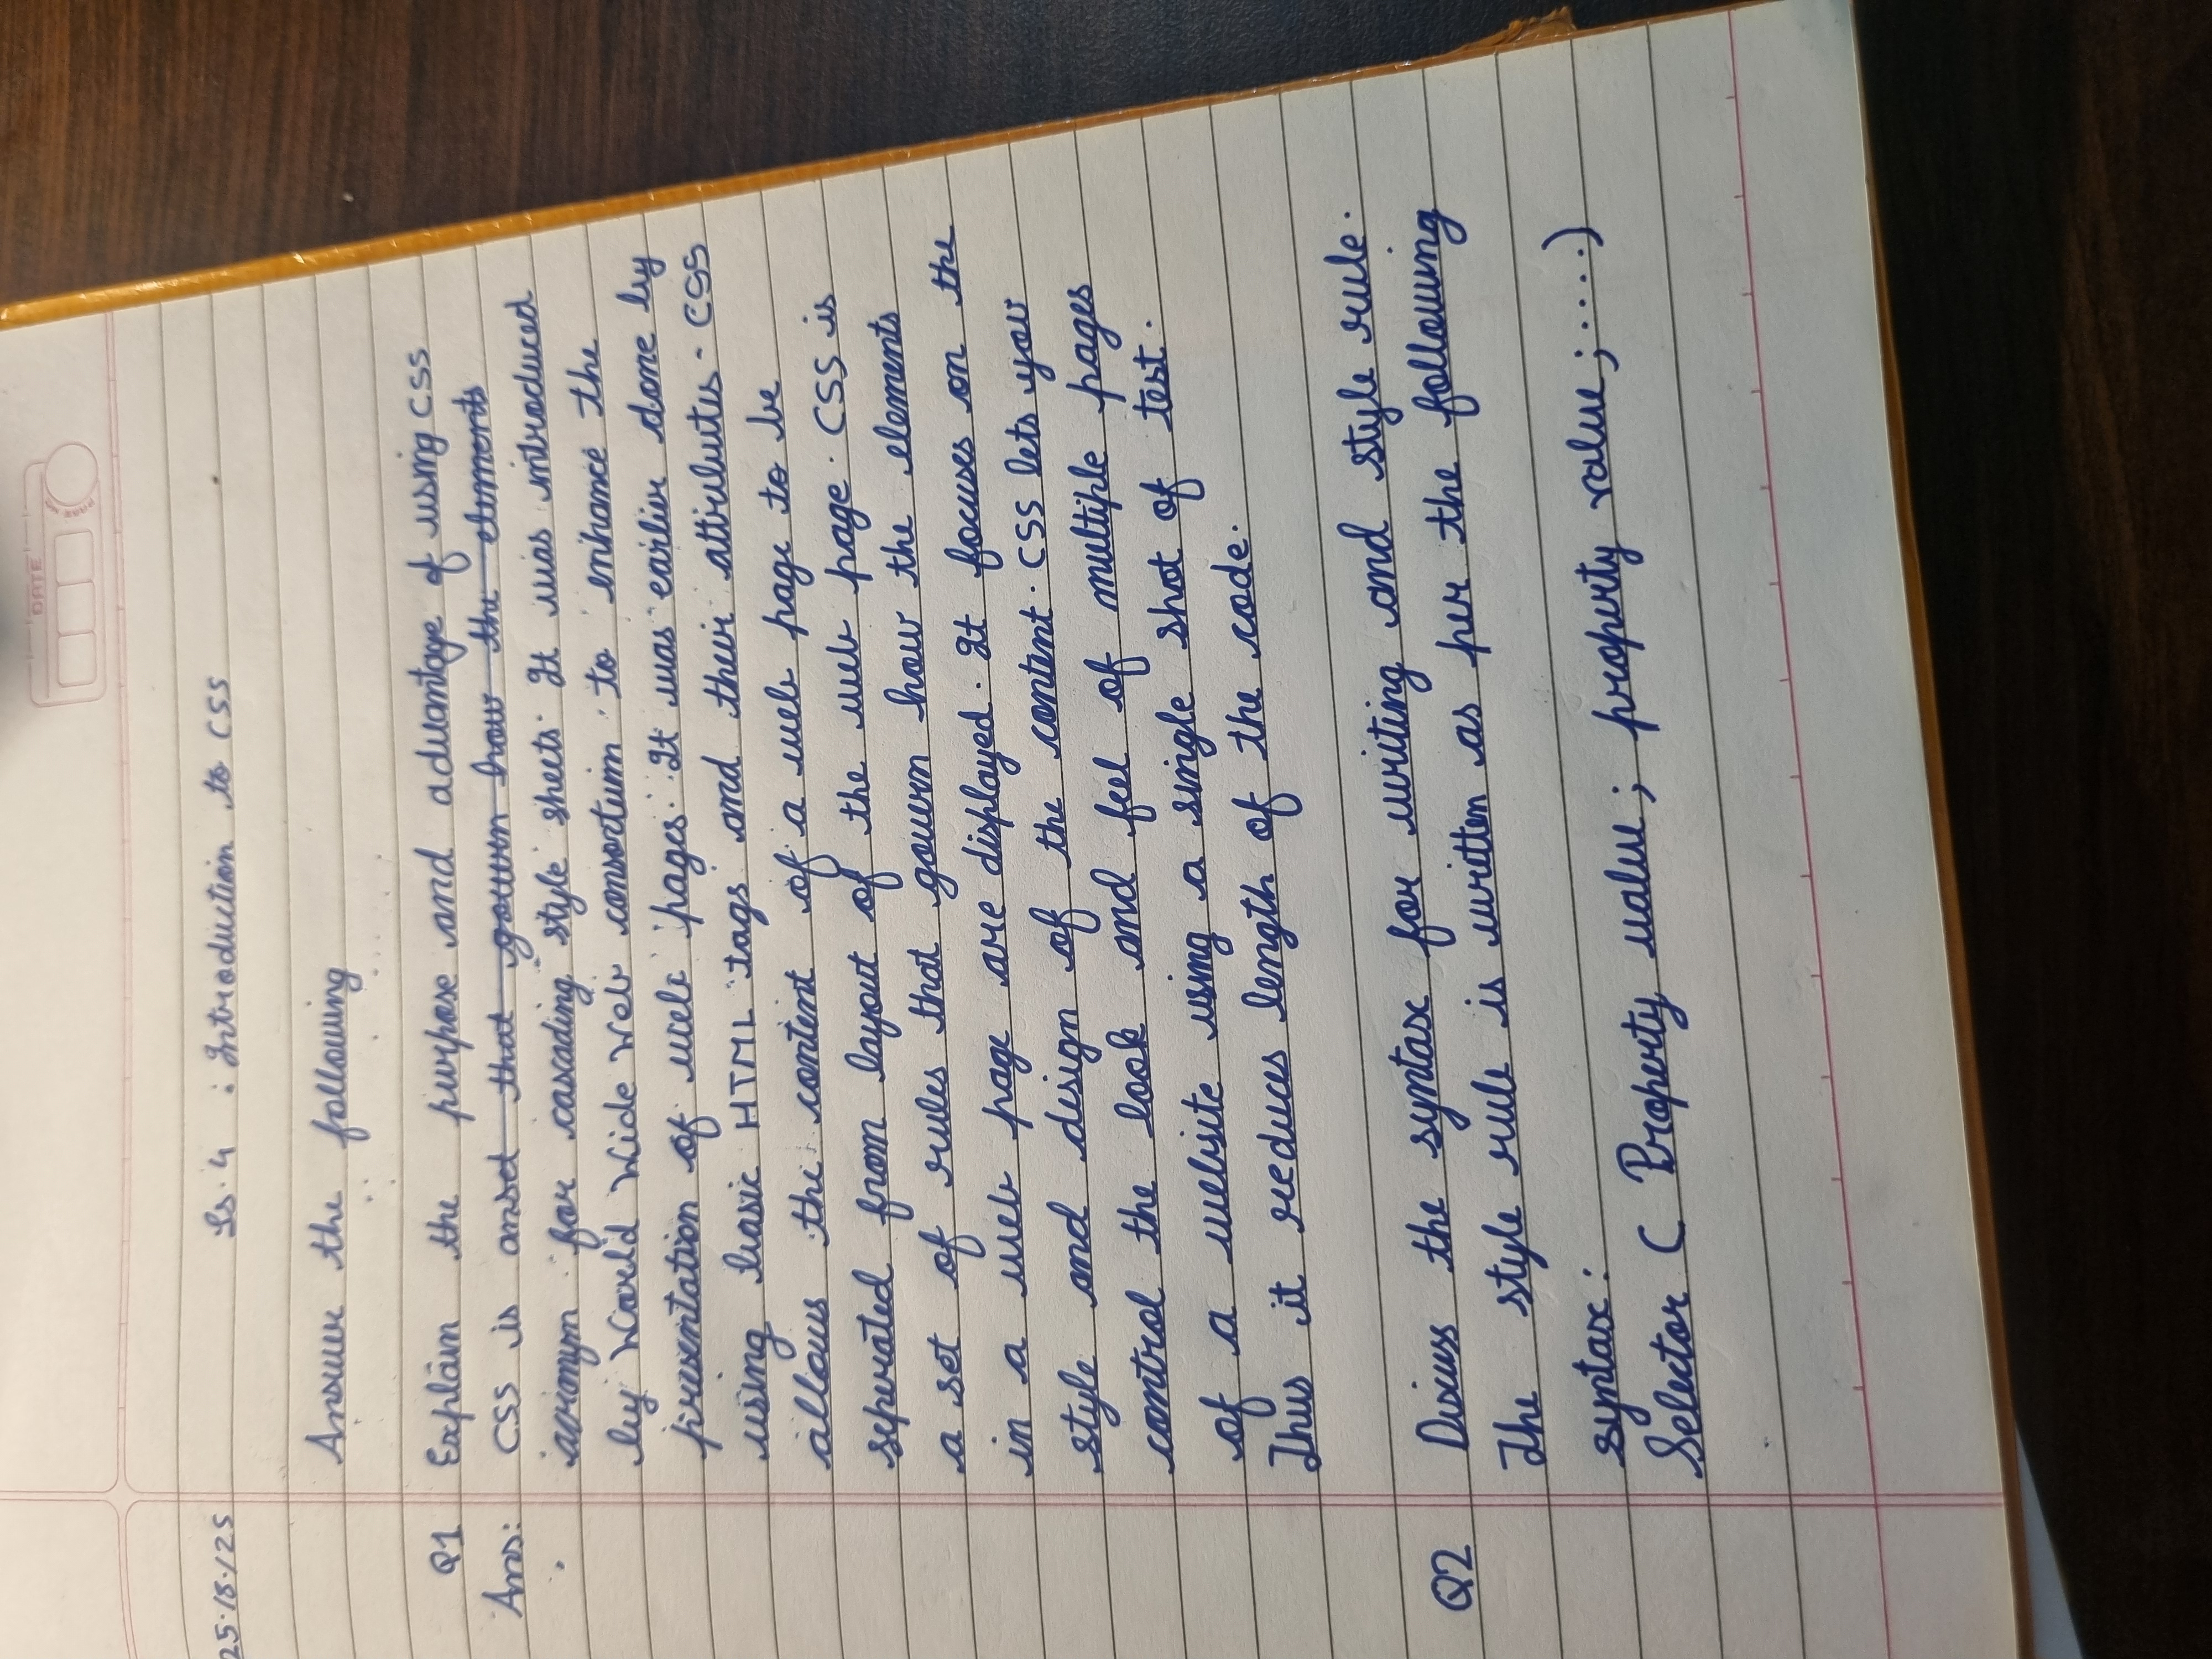 25.18.125
Ls.4 : Introduction to CSS
DATE
Answer the following
Q1 Explain the purpose and advantage of using CSS
Ans: CSS is anset that govern how the elements
acronym for cascading style sheets. It was introduced
by World Wide Web consortium to enhance the
presentation of web pages. It was earlier done by
using basic HTML tags and their attributes. CSS
allows the content of a web page to be
seperated from layout of the web page. CSS is
a set of rules that govern how the elements
in a web page are displayed. It focuses on the
style and design of the content. CSS lets you
control the look and feel of multiple pages
of a website using a single shot of test.
Thus it reduces length of the code.
Q2 Discuss the syntax for writing and style rule.
The style rule is written as per the following
syntax:
Selector ( Property value ; property value ; ....)